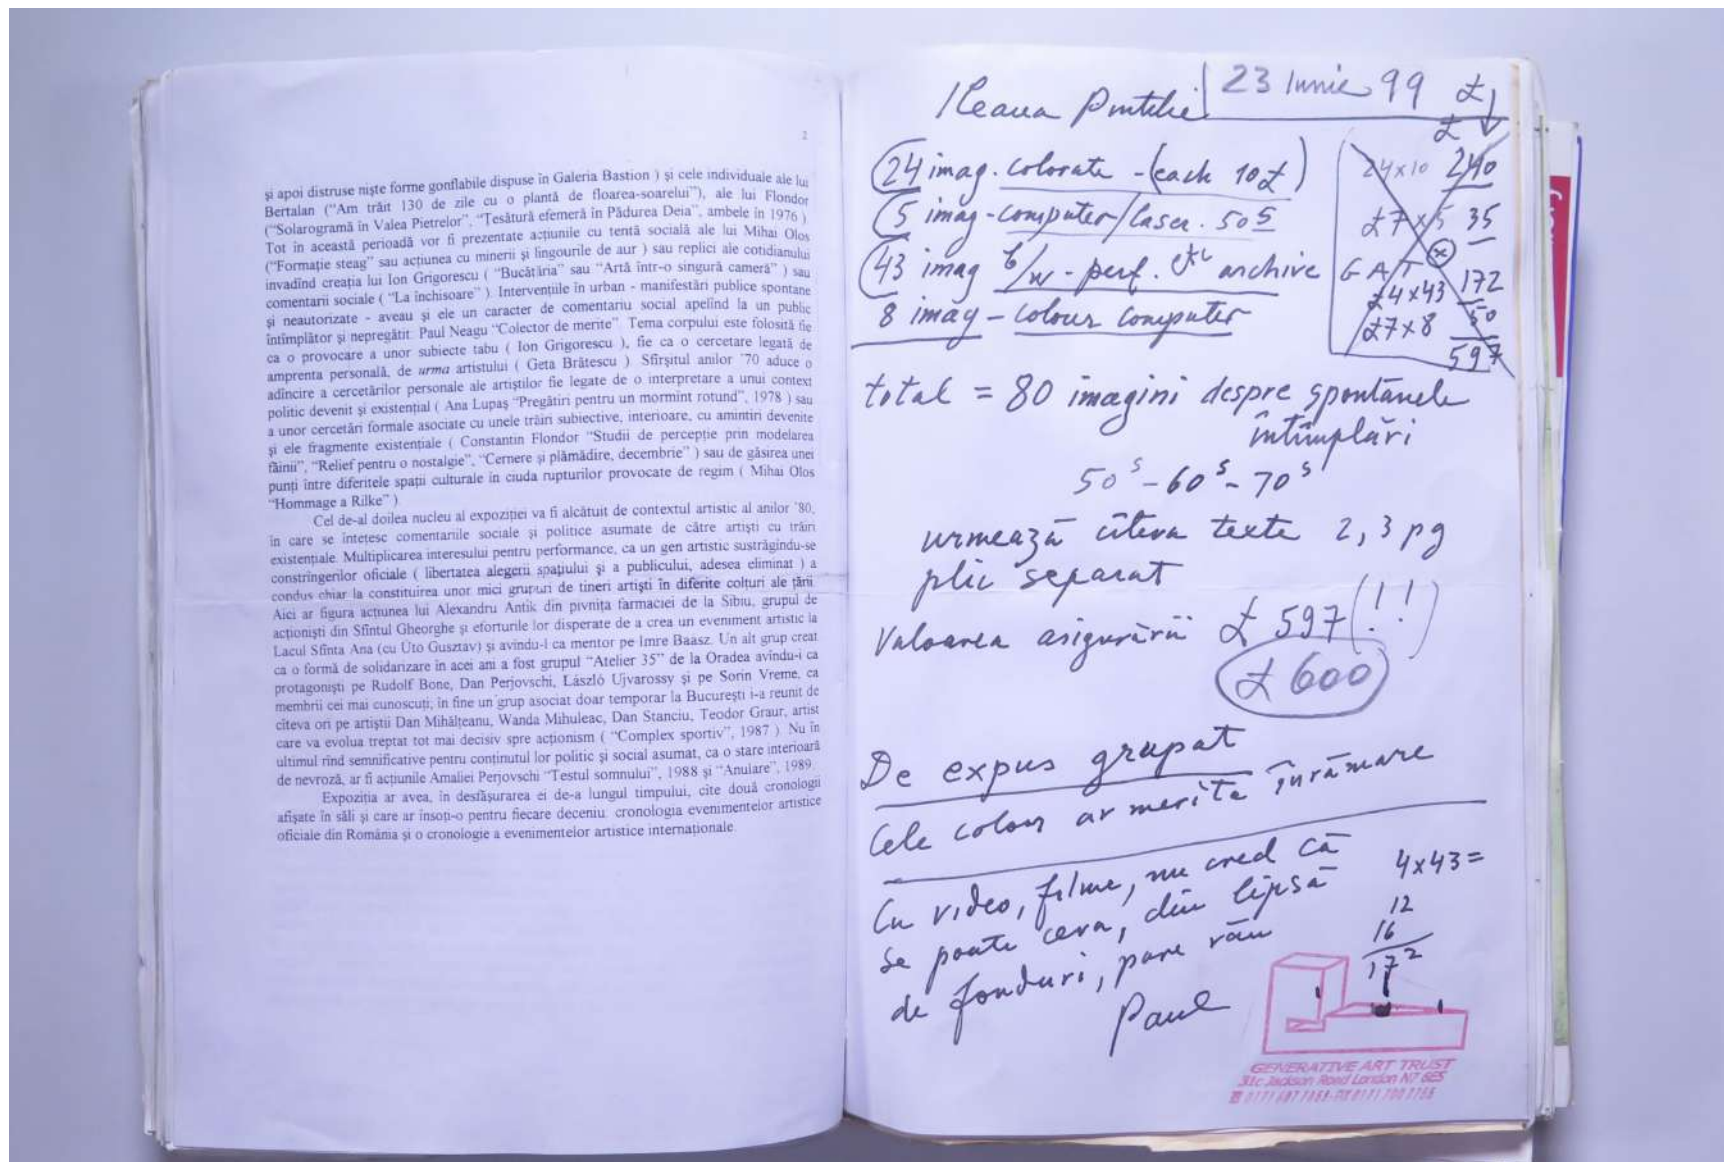 2
și apoi distruse niște forme gonflabile dispuse în Galeria Bastion ) și cele individuale ale lui
Bertalan (“Am trăit 130 de zile cu o plantă de floarea-soarelui”), ale lui Flondor
(“Solarogramă în Valea Pietrelor”, “Tesătură efemeră în Pădurea Deia”, ambele în 1976 )
Tot în această perioadă vor fi prezentate acțiunile cu tentă socială ale lui Mihai Olos
(“Formație steag” sau acțiunea cu minerii și lingourile de aur ) sau replici ale cotidianului
invadînd creația lui Ion Grigorescu ( “Bucătăria” sau “Artă într-o singură cameră” ) sau
comentarii sociale ( “La închisoare” ) Intervențiile în urban - manifestări publice spontane
și neautorizate - aveau și ele un caracter de comentariu social apelînd la un public
întîmplător și nepregătit. Paul Neagu “Colector de merite”. Tema corpului este folosită fie
ca o provocare a unor subiecte tabu ( Ion Grigorescu ), fie ca o cercetare legată de
amprenta personală, de urma artistului ( Geta Brătescu ). Sfîrșitul anilor ’70 aduce o
adîncire a cercetărilor personale ale artiștilor fie legate de o interpretare a unui context
politic devenit și existențial ( Ana Lupaș “Pregătiri pentru un mormint rotund”, 1978 ) sau
a unor cercetări formale asociate cu unele trăiri subiective, interioare, cu amintiri devenite
și ele fragmente existențiale ( Constantin Flondor “Studii de percepție prin modelarea
făinii”, “Relief pentru o nostalgie”, “Cernere și plămădire, decembrie” ) sau de găsirea unei
punți între diferitele spații culturale în ciuda rupturilor provocate de regim ( Mihai Olos
“Hommage a Rilke” )
Cel de-al doilea nucleu al expoziției va fi alcătuit de contextul artistic al anilor ’80,
în care se întețesc comentariile sociale și politice asumate de către artiști cu trăiri
existențiale. Multiplicarea interesului pentru performance, ca un gen artistic sustrăgîndu-se
constrîngerilor oficiale ( libertatea alegerii spațiului și a publicului, adesea eliminat ) a
condus chiar la constituirea unor mici grupuri de tineri artiști în diferite colțuri ale țării.
Aici ar figura acțiunea lui Alexandru Antik din pivnița farmaciei de la Sibiu, grupul de
acționiști din Sfîntul Gheorghe și eforturile lor disperate de a crea un eveniment artistic la
Lacul Sfînta Ana (cu Uto Gusztav) și avîndu-l ca mentor pe Imre Baasz. Un alt grup creat
ca o formă de solidarizare în acei ani a fost grupul “Atelier 35” de la Oradea avîndu-i ca
protagoniști pe Rudolf Bone, Dan Perjovschi, László Ujvarossy și pe Sorin Vreme, ca
membrii cei mai cunoscuți; în fine un grup asociat doar temporar la București i-a reunit de
cîteva ori pe artiștii Dan Mihălțeanu, Wanda Mihuleac, Dan Stanciu, Teodor Graur, artist
care va evolua treptat tot mai decisiv spre acționism ( “Complex sportiv”, 1987 ). Nu în
ultimul rînd semnificative pentru conținutul lor politic și social asumat, ca o stare interioară
de nevroză, ar fi acțiunile Amaliei Perjovschi “Testul somnului”, 1988 și “Anulare”, 1989.
Expoziția ar avea, în desfășurarea ei de-a lungul timpului, cîte două cronologii
afișate în săli și care ar însoți-o pentru fiecare deceniu: cronologia evenimentelor artistice
oficiale din România și o cronologie a evenimentelor artistice internaționale.
Ileana Pintilie
23 Iunie 99 £
£
24 imag. colorate - (each 10£)
5 imag - computer/laser. 50s
43 imag b/w - perf. etc archive GAT
8 imag - colour computer
24x10 240
£7x5 35
£4x43 172
£7x8 50
597
total = 80 imagini despre spontanele
întîmplări
50s - 60s - 70s
urmează cîteva texte 2, 3 pg
plic separat
Valoarea asigurării £ 597 (!!)
£ 600
De expus grupat
Cele colour ar merita înrămare
Cu video, filme, nu cred că
se poate ceva, din lipsă
de fonduri, pare rău
Paul
4x43=
12
16
172
GENERATIVE ART TRUST
31c Jackson Road London N7 6ES